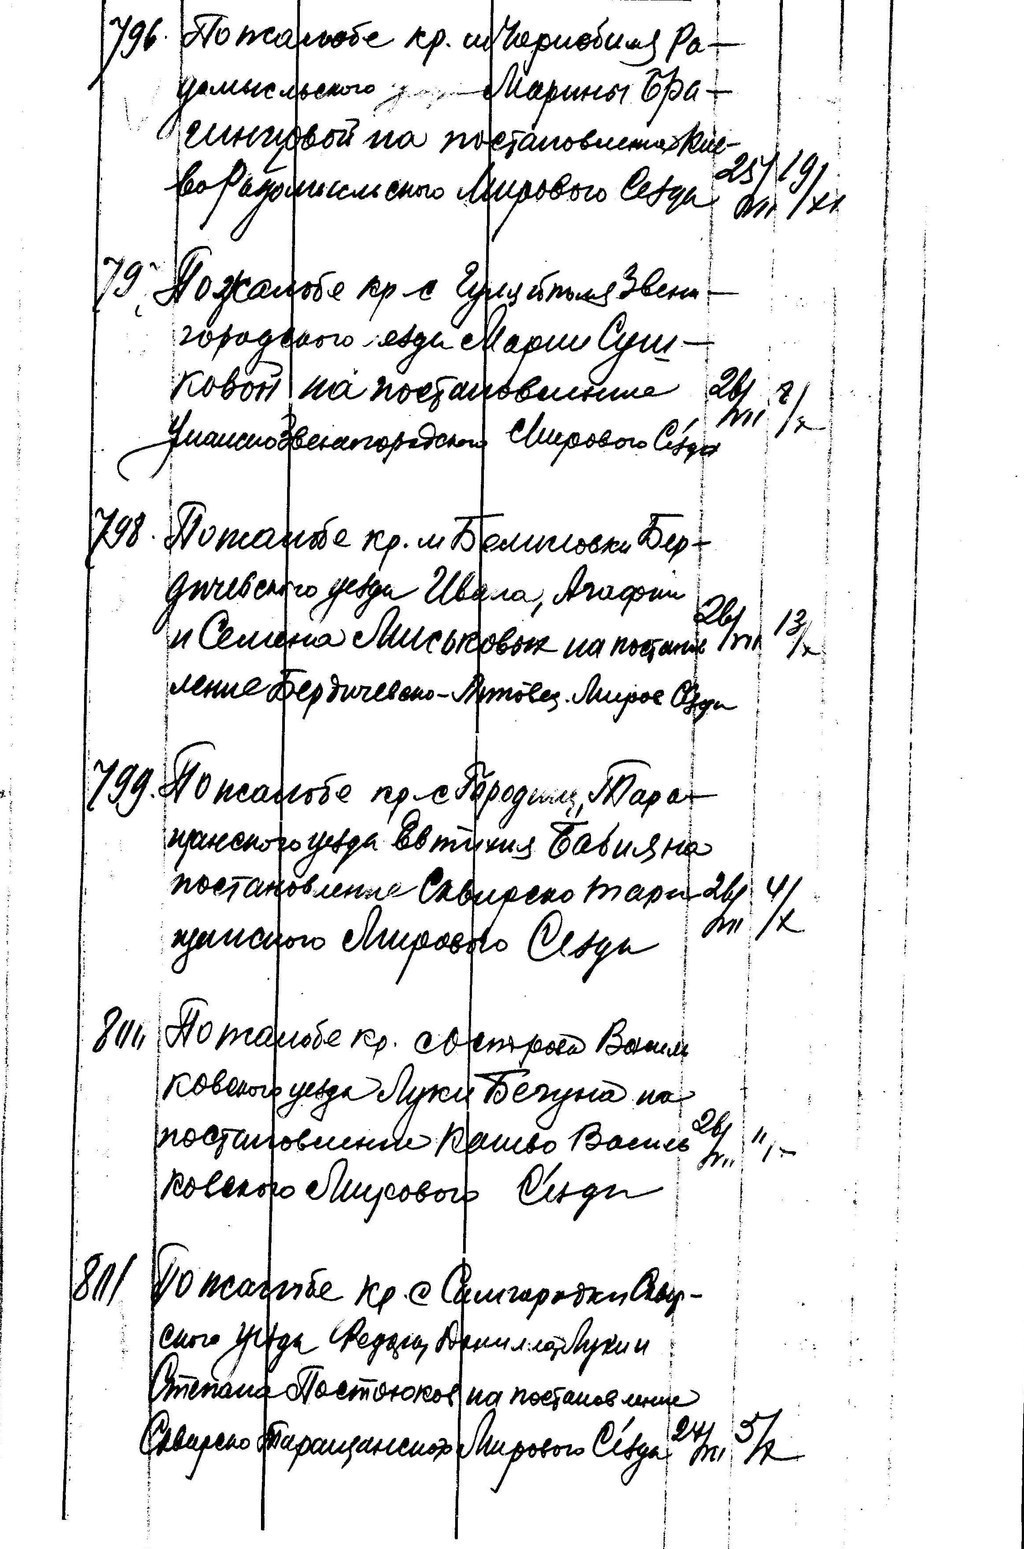 796. По жалобе кр. м Чернобиля Ра-
домысльского Марины Бра-
гинцовой на постановление Кие-
во Радомысльского Мирового Сезда 25/VII 19/XI
79 По жалобе кр с Гуляйполя Звени-
городского уезда Марии Суш-
ковой на постановление 26/VII 7/X
Уманско Звенигородского Мирового Сезда
798. По жалобе кр. м Белиловки Бер-
дичевского уезда Ивана, Агафии
и Семена Миськовых на постанов 26/VII 13/X
ление Бердичевско-Липовец. Миров Сезда
799. По жалобе кр с Городищ, Тара-
щанского уезда Евтихия Бабия на
постановление Сквирско Тара 26/VII 4/X
щанского Мирового Сезда
800 По жалобе кр. с Острова Василь
ковского уезда Луки Бегуна на
постановление Киево Василь 26/VII
ковского Мирового Сезда
801 По жалобе кр. с Самгородки Сквир-
ского уезда Федора, Даниила, Луки и
Степана Постоюков на постановление
Сквирско Таращанского Мирового Сезда 27/VII 5/X